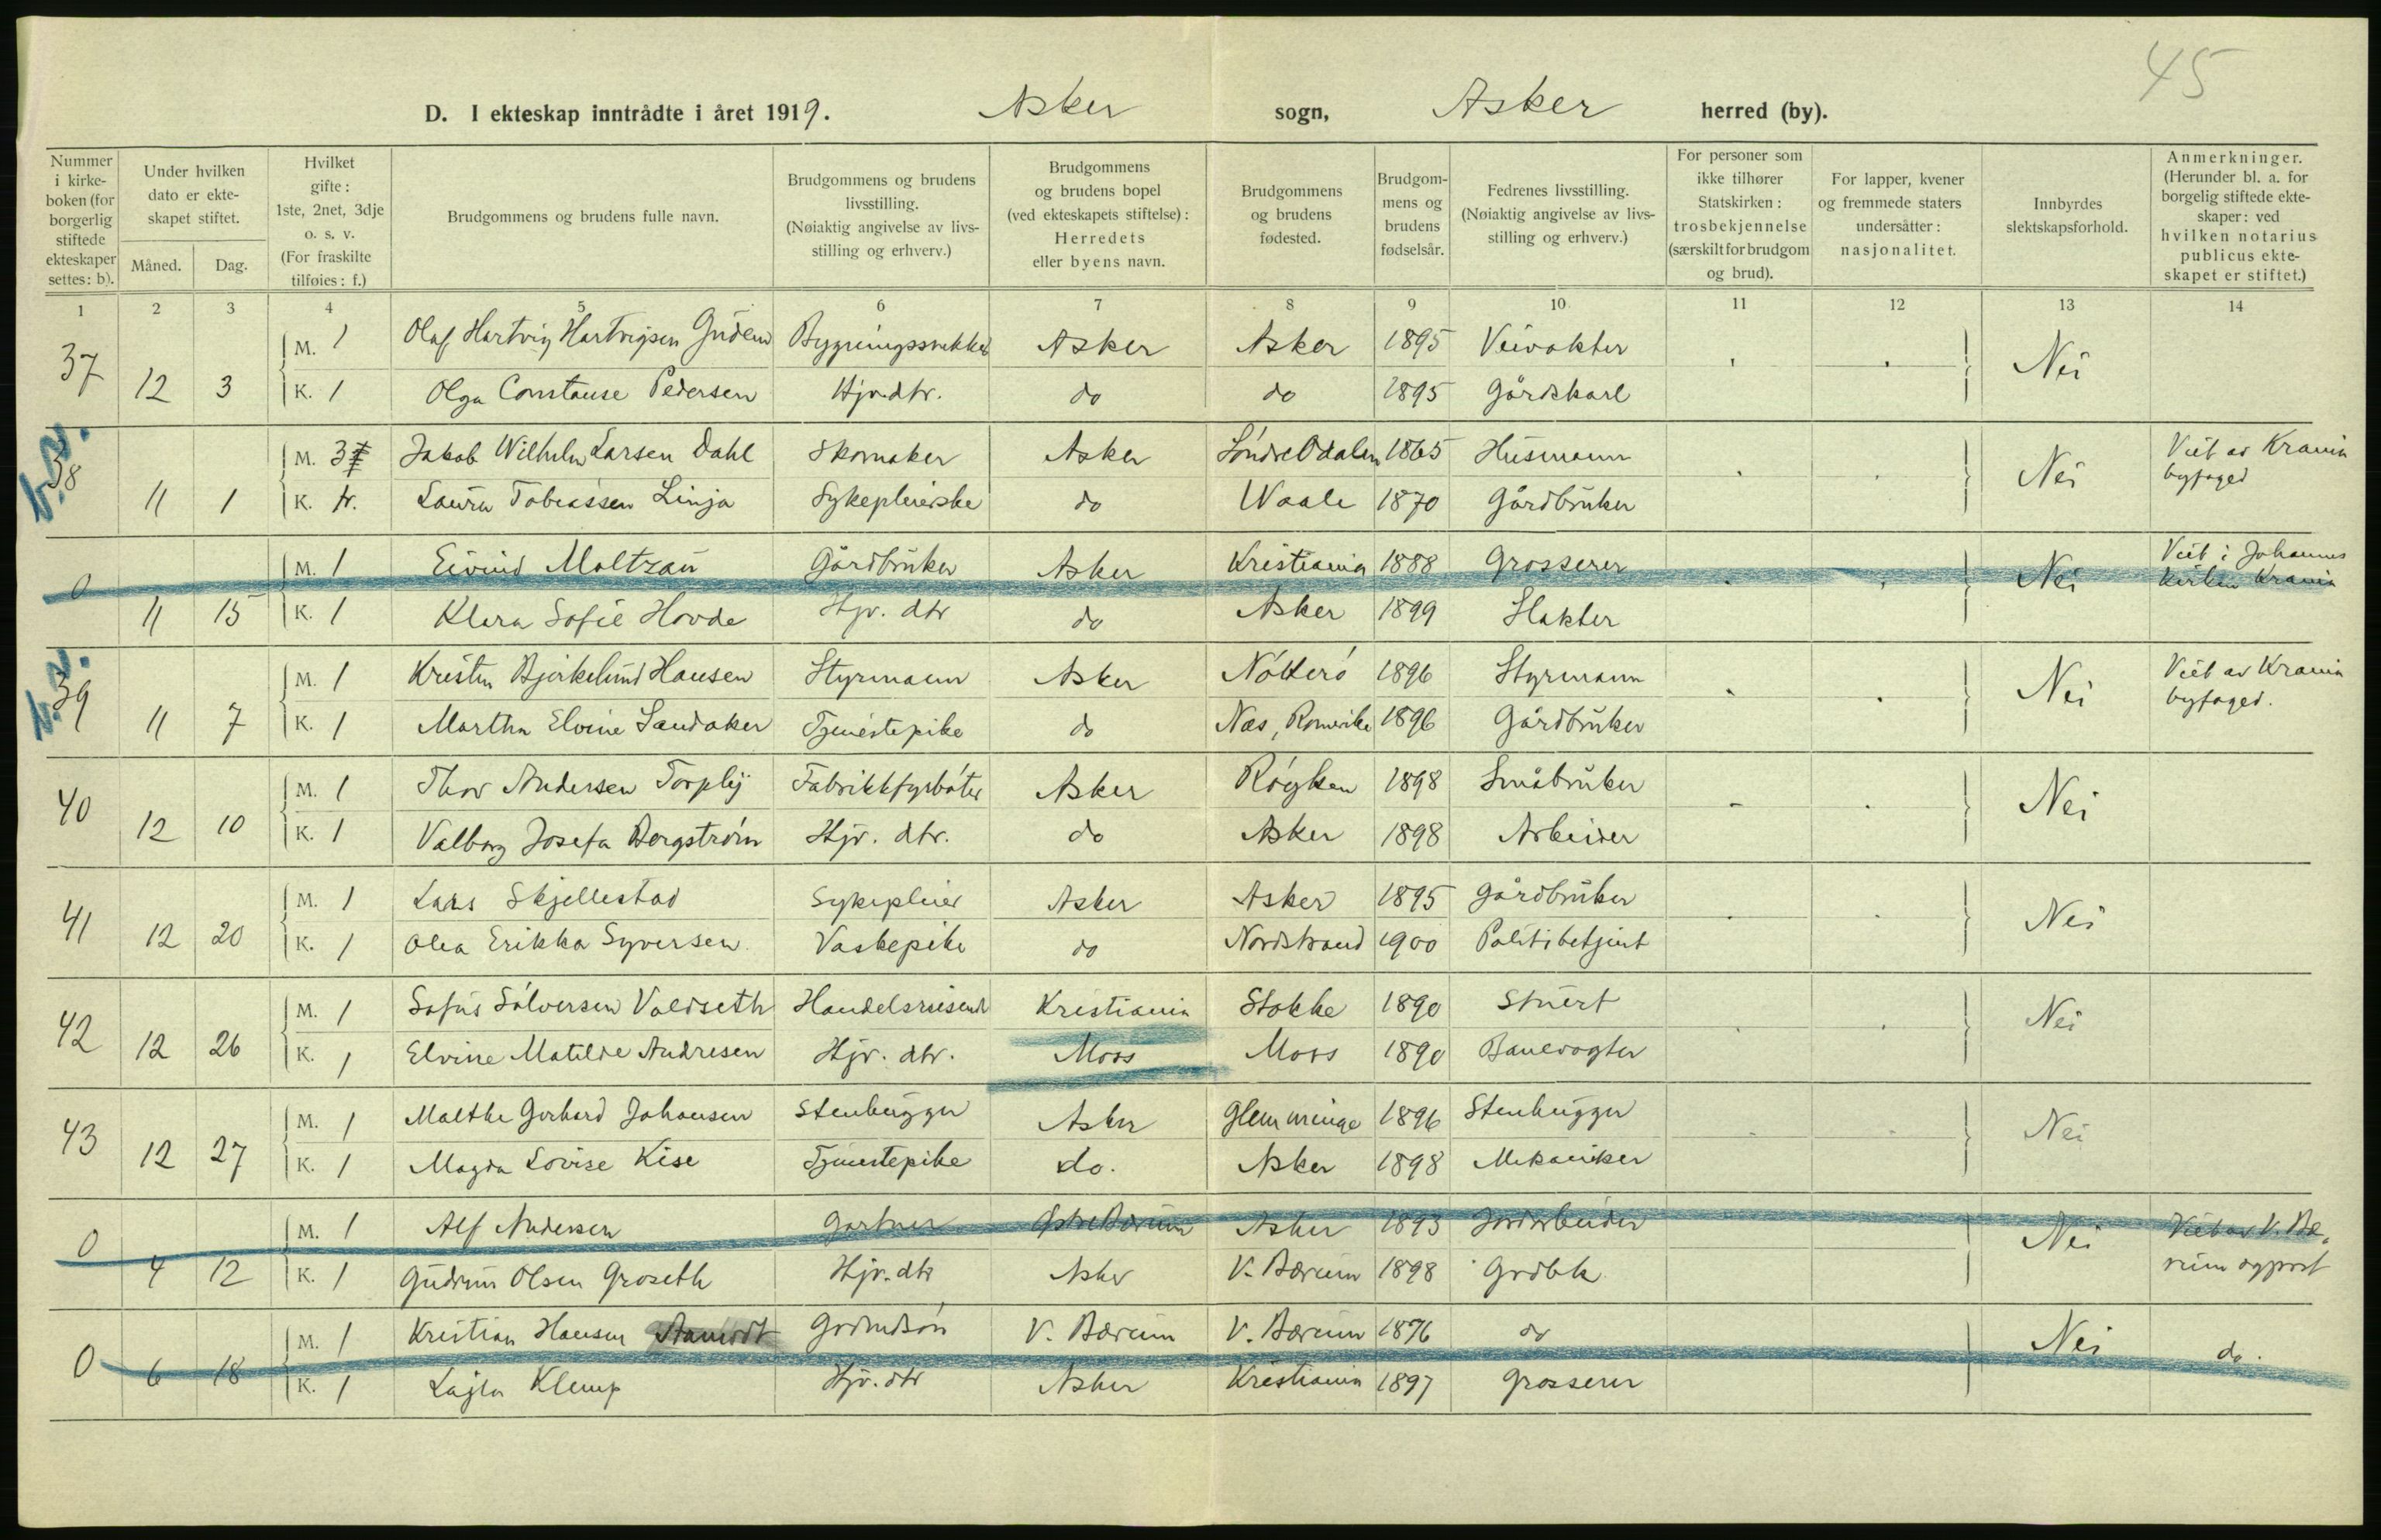 45
D. I ekteskap inntrådte i året 1919. Asker sogn, Asker herred (by).
Nummer i kirkeboken (for borgerlig stiftede ekteskaper settes: b).
Under hvilken dato er ekteskapet stiftet.
Måned. Dag.
Hvilket gifte: 1ste, 2net, 3dje o. s. v. (For fraskilte tilføies: f.)
Brudgommens og brudens fulle navn.
Brudgommens og brudens livsstilling. (Nøiaktig angivelse av livsstilling og erhverv.)
Brudgommens og brudens bopel (ved ekteskapets stiftelse): Herredets eller byens navn.
Brudgommens og brudens fødested.
Brudgommens og brudens fødselsår.
Fedrenes livsstilling. (Nøiaktig angivelse av livsstilling og erhverv.)
For personer som ikke tilhører Statskirken: trosbekjennelse (særskilt for brudgom og brud).
For lapper, kvener og fremmede staters undersåtter: nasjonalitet.
Innbyrdes slektskapsforhold.
Anmerkninger. (Herunder bl. a. for borgelig stiftede ekteskaper: ved hvilken notarius publicus ekteskapet er stiftet.)
1 2 3 4 5 6 7 8 9 10 11 12 13 14
37 M. 1 Olaf Hartvig Hartvigsen Asker Asker 1895 Veivokter Nei
12 3 K. 1 Olga Constanse Pedersen Hjv. dtr. do do 1895 Gårdskarl
38 M. 3 Jakob Wilhelm Larsen Dahl Skomaker Asker Søndre Odalen 1865 Husmann Nei Viet av Krania
11 1 K. Laura Tobiassen Linja Sykepleierske do Waale 1870 Gårdbruker byfoged
0 M. 1 Eivind Maltzau Gårdbruker Asker Kristiania 1888 Grosserer Nei Viet i Johannes
11 15 K. 1 Klara Sofie Hovde Hjv. dtr do Asker 1899 Slakter kirken Krania
39 M. 1 Kristen Bjerkelund Hansen Styrmann Asker Nøtterø 1896 Styrmann Nei Viet av Krania
11 7 K. 1 Martha Elvine Sandaker Tjenestepike do Næs, Romerike 1896 Gårdbruker byfoged.
40 M. 1 Thor Andersen Fabrikkfyrbøter Asker Røyken 1898 Småbruker Nei
12 10 K. 1 Valborg Josefa Bergstrøm Hjv. dtr. do Asker 1898 Arbeider
41 M. 1 Lars Skjellestad Sykepleier Asker Asker 1895 Gårdbruker Nei
12 20 K. 1 Olea Erikka Syversen Vaskepike do Nordstrand 1900 Politibetjent
42 M. 1 Sofus Sølversen Valdseth Handelsreisende Kristiania Stokke 1890 Stuert Nei
12 26 K. 1 Elvine Matilde Andresen Hjv. dtr. Moss Moss 1890 Banevogter
43 M. 1 Malthe Gerhard Johansen Stenhugger Asker Glemminge 1896 Stenhugger Nei
12 27 K. 1 Magda Lovise Kise Tjenestepike do. Asker 1898 Mekaniker
0 M. 1 Alf Andersen Gartner Østre Bærum Asker 1893 Jordarbeider Nei Viet av V. Bæ-
4 12 K. 1 Gudrun Olsen Groseth Hjv. dtr Asker V. Bærum 1898 Grdbk. rum sgprst
0 M. 1 Kristian Hansen Aamodt V. Bærum V. Bærum 1876 do Nei do.
6 18 K. 1 Lajla Klemp Hjv. dtr Asker Kristiania 1897 Grosserer